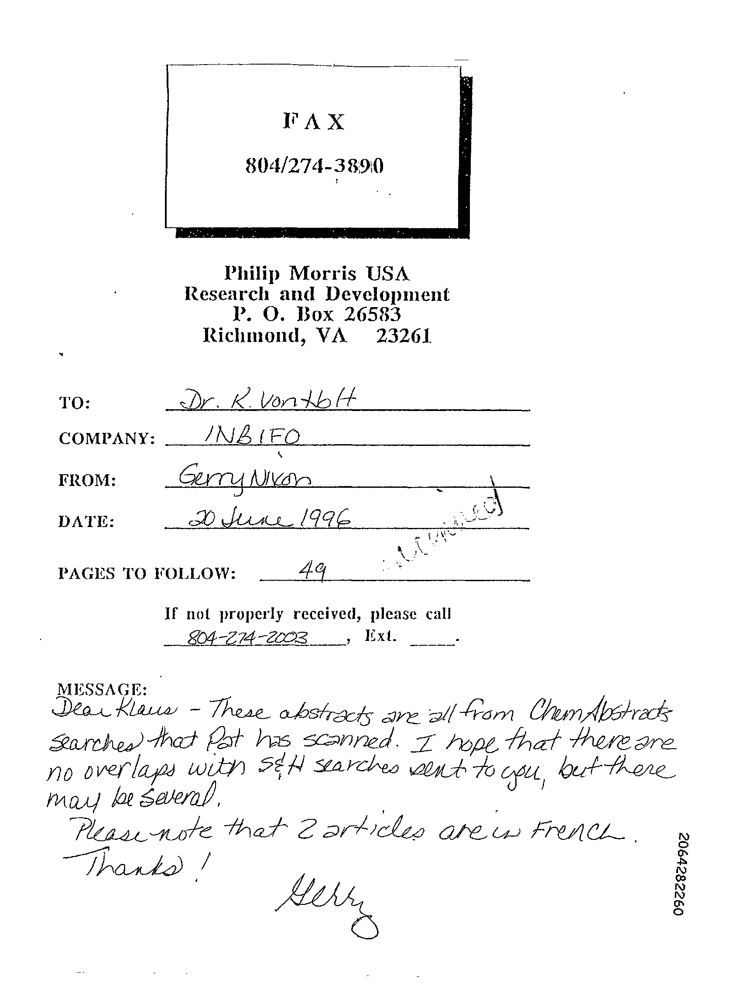 FAX
804/274-3890
Philip Morris USA
Research and Development
P. O. Box 26583
Richmond, VA 23261
TO: Dr. K. Von Holt
COMPANY: INBIFO
FROM: Gerry Nixon
DATE: 20 June 1996
PAGES TO FOLLOW: 49
If not properly received, please call
804-274-2003, Ext. ____.
MESSAGE:
Dear Klaus - These abstracts are all from ChemAbstracts
searches that Pat has scanned. I hope that there are
no overlaps with S&H searches sent to you, but there
may be several.
Please note that 2 articles are in French.
Thanks!
Gerry
2064282260